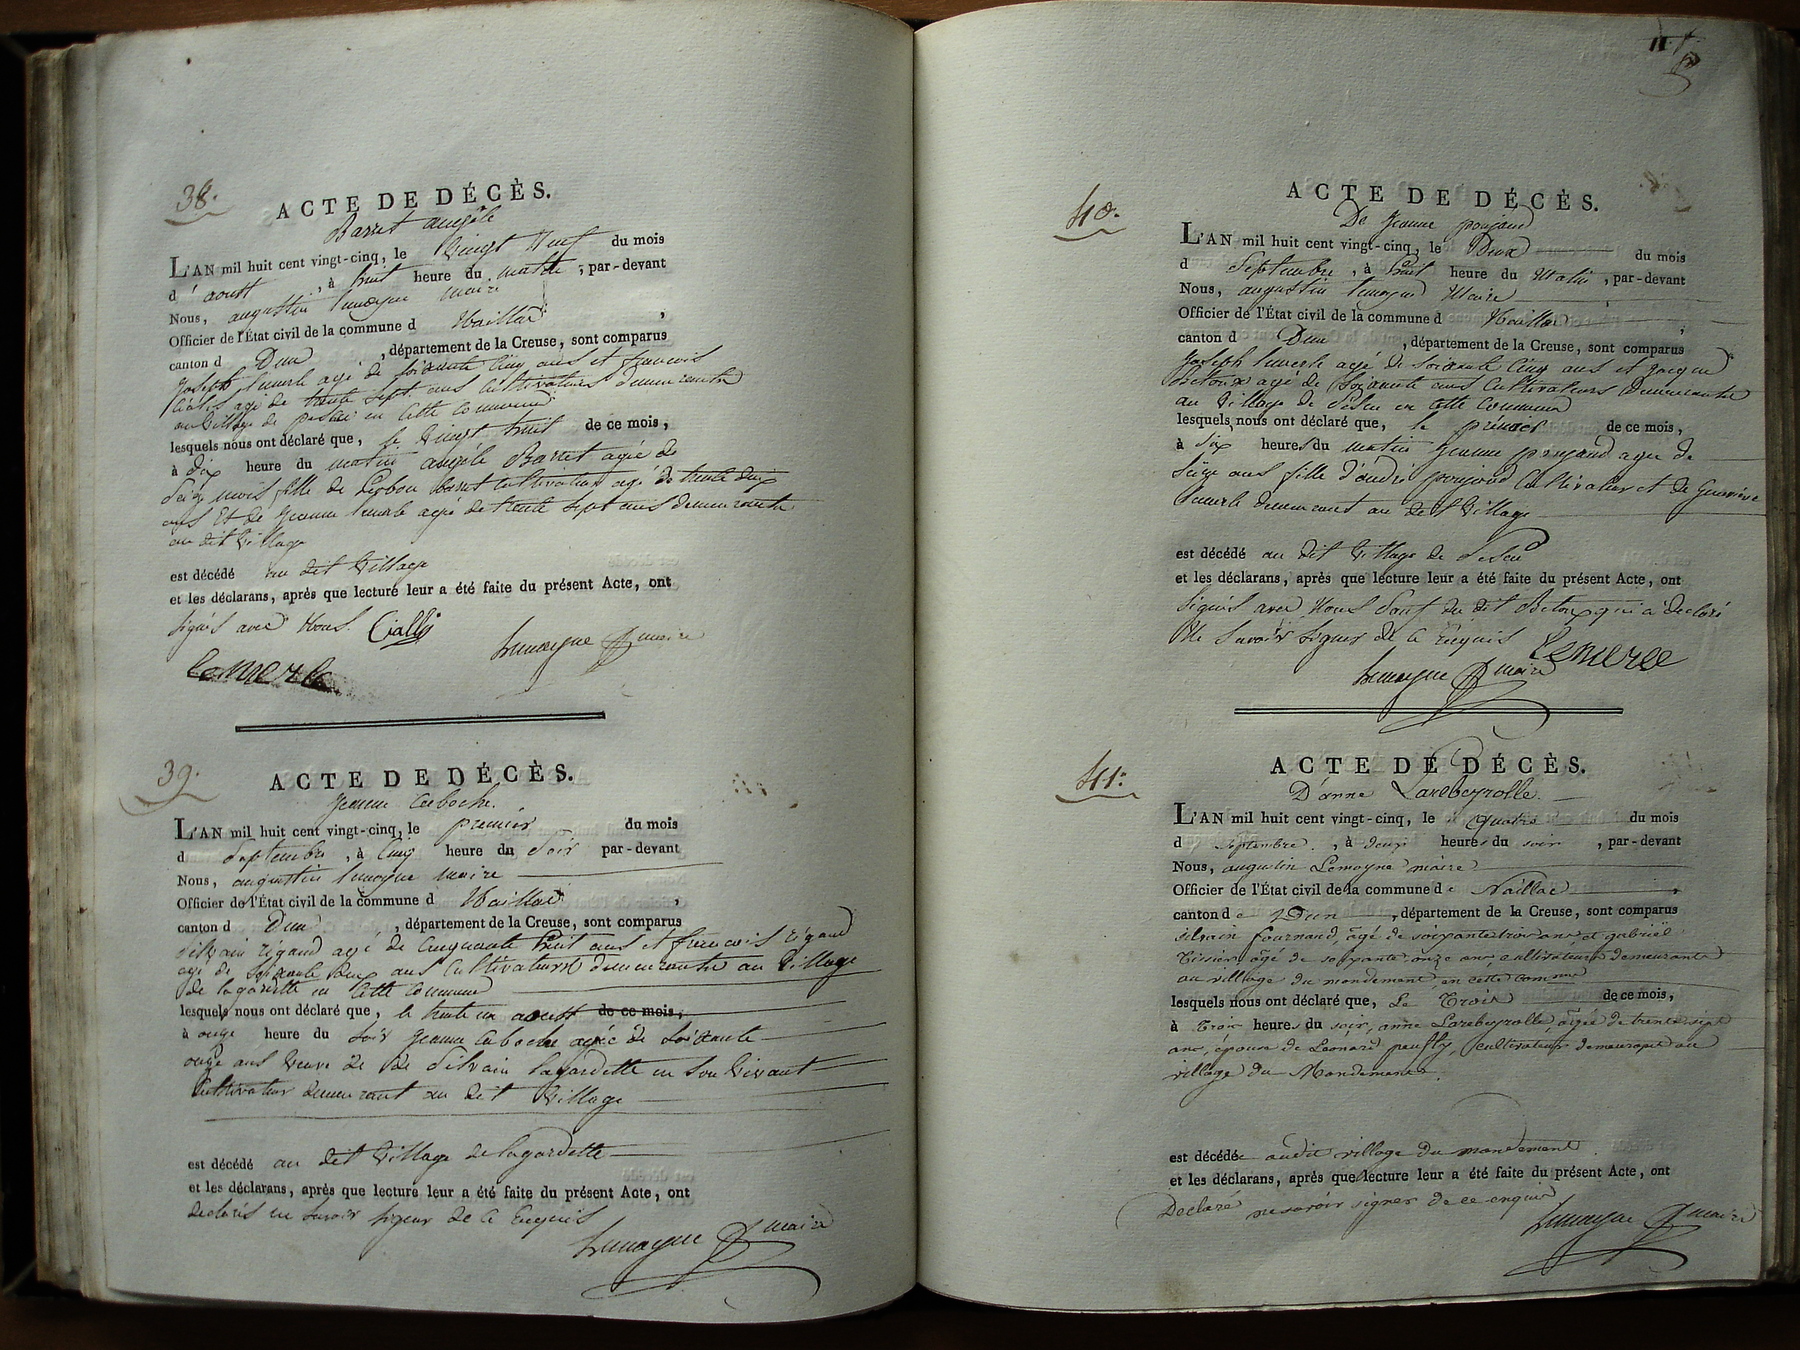 38.
ACTE DE DÉCÈS.
Barret angèle
L'AN mil huit cent vingt-cinq, le Vingt Neuf du mois
d' aoust, à huit heure du matin, par-devant
Nous, augustin lemoyne maire
Officier de l'État civil de la commune d Naillac,
canton d Dun, département de la Creuse, sont comparus
joseph lemerle agé de soixante Cinq ans et francois
agé de trente sept ans Cultivateurs demeurants
au village de en Cette Commune
lesquels nous ont déclaré que, le Vingt huit de ce mois,
à dix heure du matin angèle Barret agée de
Seize mois fille de Barret Cultivateur agé de trente
ans Et de jeanne lemerle agée de trente sept ans demeurants
au dit Village
est décédé au dit Village
et les déclarans, après que lecture leur a été faite du présent Acte, ont
signés avec Nous. Cialli
lemoyne maire
lemerle
39.
ACTE DE DÉCÈS.
jeanne Caboche.
L'AN mil huit cent vingt-cinq, le premier du mois
d Septembre, à Cinq heure du Soir par-devant
Nous, augustin lemoyne maire
Officier de l'État civil de la commune d Naillac,
canton d Dun, département de la Creuse, sont comparus
Silvain rigaud agé de Cinquante huit ans et francois rigaud
agé de soixante deux ans Cultivateurs demeurants au Village
de lagardette en Cette Commune
lesquels nous ont déclaré que, le trente un aoust de ce mois,
à onze heure du Soir jeanne Caboche agée de Soixante
onze ans Veuve de de Silvain lagardette en Son Vivant
Cultivateur demeurant au dit Village
est décédé au dit Village de lagardette
et les déclarans, après que lecture leur a été faite du présent Acte, ont
declarés ne Savoir signer de Ce Enquis
lemoyne maire
40.
ACTE DE DÉCÈS.
De jeanne poujaud
L'AN mil huit cent vingt-cinq, le Deux du mois
d Septembre, à huit heure du Matin, par-devant
Nous, augustin lemoyne Maire
Officier de l'État civil de la commune d Naillac,
canton d Dun, département de la Creuse, sont comparus
joseph lemerle agé de soixante Cinq ans et jacque
Betoux agé de Soixante ans Cultivateurs Demeurants
au Village de en Cette Commune
lesquels nous ont déclaré que, le premier de ce mois,
à Six heures du matin jeanne poujaud agée de
Seize ans fille d'andré poujaud Cultivateur et de
lemerle demeurant au dit Village
est décédé au dit Village de
et les déclarans, après que lecture leur a été faite du présent Acte, ont
signés avec Nous Sauf du dit Betoux qui a declaré
Ne Savoir signer de Ce Enquis
lemerle
lemoyne maire
41:
ACTE DE DÉCÈS.
D'anne Larebeyrolle.
L'AN mil huit cent vingt-cinq, le quatre du mois
d Septembre, à deux heures du soir, par-devant
Nous, augustin Lemoyne maire
Officier de l'État civil de la commune de Naillac,
canton de Dun, département de la Creuse, sont comparus
silvain fournaud, âgé de soixante trois ans, et gabriel
Tixier âgé de soixante onze ans cultivateurs demeurants
au village du mondement, en cette commune
lesquels nous ont déclaré que, Le Trois de ce mois,
à Trois heures du soir, anne Larebeyrolle, âgée de trente sept
ans, épouse de Leonard, cultivateur demeurant au
village du Mondement.
est décédée audit village du mondement
et les déclarans, après que lecture leur a été faite du présent Acte, ont
Declaré ne savoir signer de ce enquis
lemoyne maire